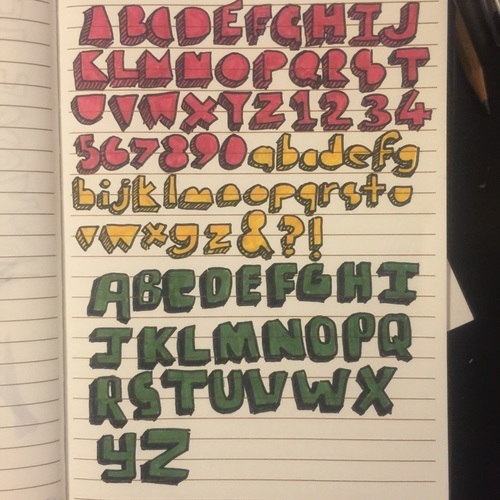 ABCDEFGHIJ
KLMNOPQRST
UVWXYZ1234
567890abcdefg
hijklmnopqrstu
vwxyz&?!
ABCDEFGHI
JKLMNOPQ
RSTUVWX
YZ